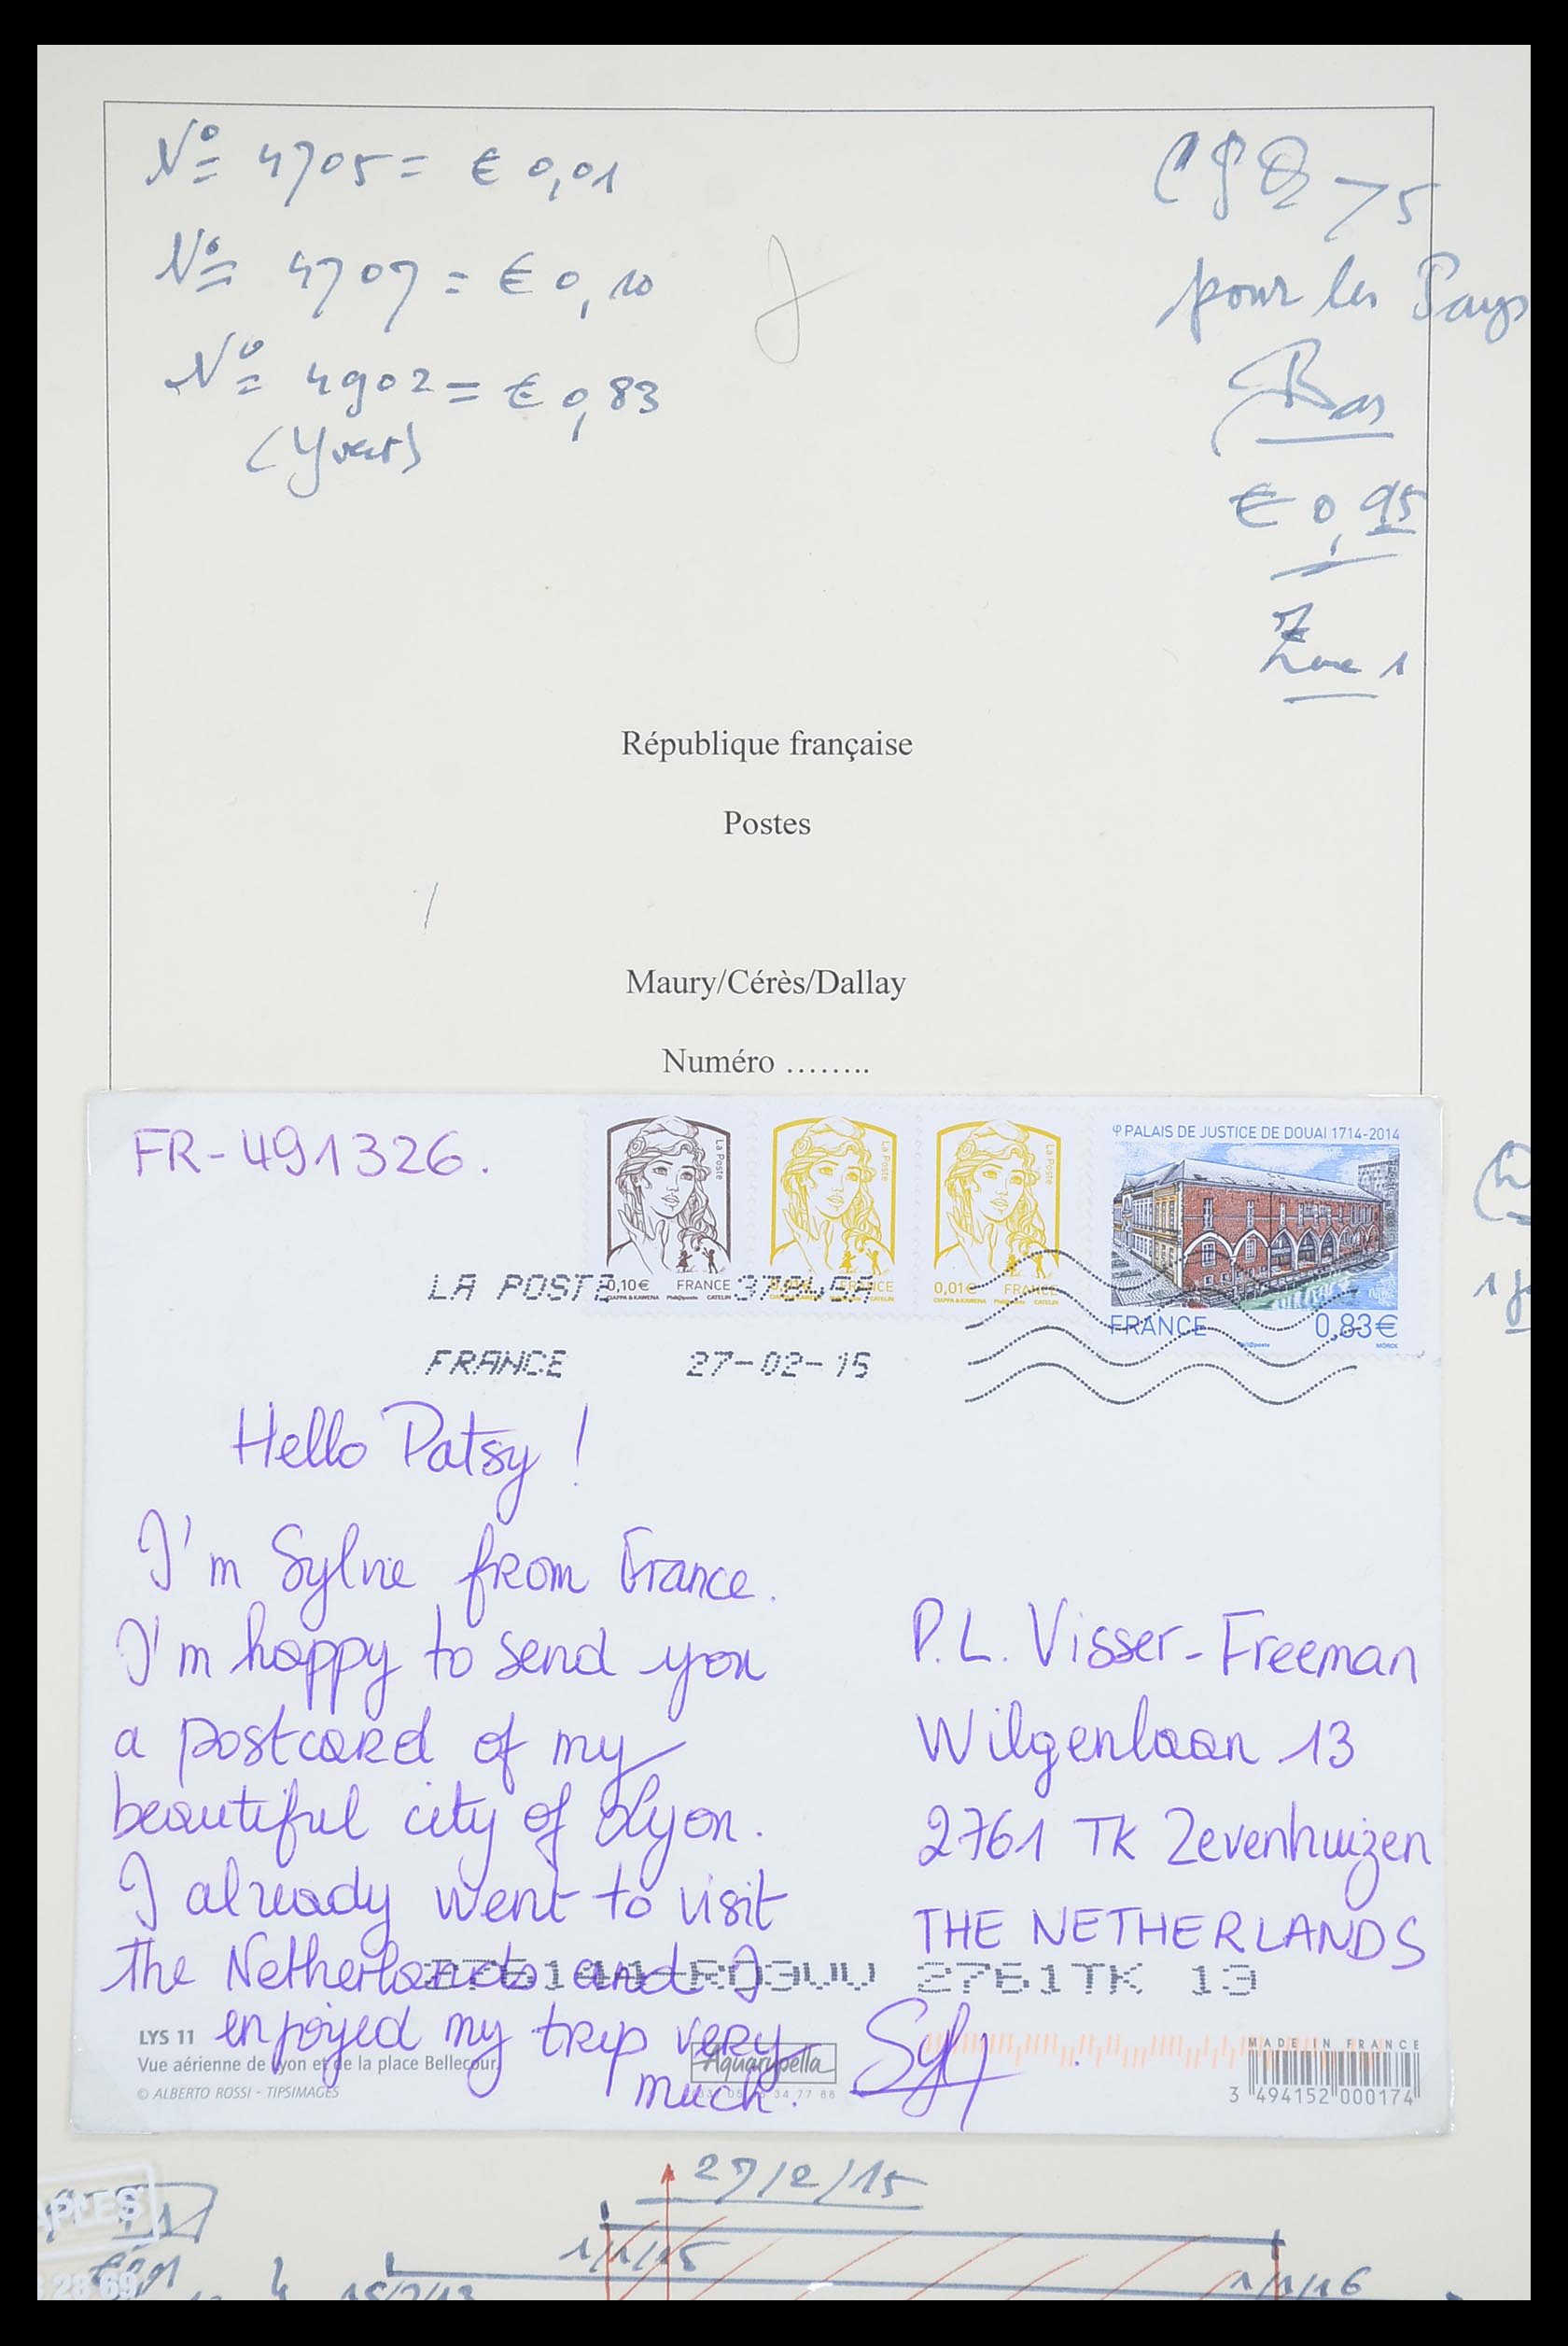 Nº 4705 = € 0,01
Nº 4707 = € 0,10
Nº 4902 = € 0,83
(Yvert)
75
pour les Pays
Bas
€ 0,95
Zone 1
République française
Postes
Maury/Cérès/Dallay
Numéro ........
FR-491326.
La Poste
0,10€ FRANCE
CIAPPA & KAWENA Phil@poste CATELIN
La Poste
FRANCE
La Poste
0,01€ FRANCE
CIAPPA & KAWENA Phil@poste CATELIN
φ PALAIS DE JUSTICE DE DOUAI 1714-2014
FRANCE 0,83€
Phil@poste MÖRCK
LA POSTE 37845A
FRANCE 27-02-15
Hello Patsy !
I'm Sylvie from France.
I'm happy to send you
a postcard of my
beautiful city of Lyon.
I already went to visit
the Netherlands and I
enjoyed my trip very
much.
P.L. Visser-Freeman
Wilgenlaan 13
2761 TK Zevenhuizen
THE NETHERLANDS
2761TK 13
LYS 11
Vue aérienne de Lyon et de la place Bellecour.
© ALBERTO ROSSI - TIPSIMAGES
Aquarupella
34 77 88
MADE IN FRANCE
3 494152 000174
27/2/15
1/1/15
1/1/16
15/2/13
28 69